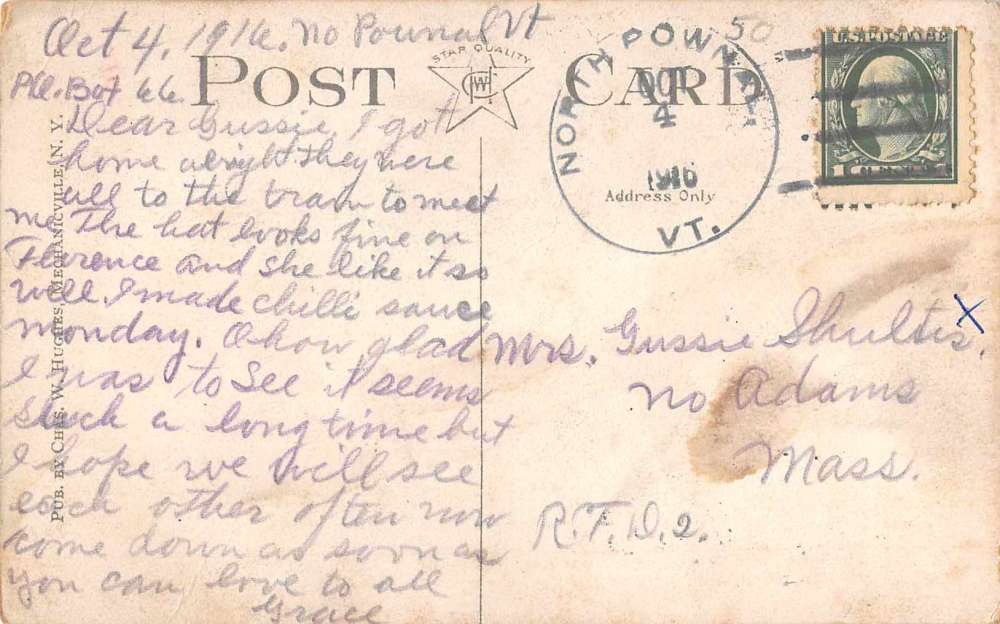 Oct 4, 1916. No Pownal Vt
P.O. Box 66.
POST CARD
STAR QUALITY
CWH
NORTH POWNAL,
OCT
4
1916
VT.
50
Address Only
1
PUB. BY CHAS. W. HUGHES, MECHANICVILLE, N. Y.
Dear Gussie, I got
home alright they were
all to the train to meet
me The hat looks fine on
Florence and she like it so
well. I made chilli sauce
monday. Oh how glad
I was to see it seems
such a long time but
I hope we will see
each other often now
come down as soon as
you can love to all
Grace
Mrs. Gussie Shultis.
X
No Adams
Mass.
R.F.D. 2.